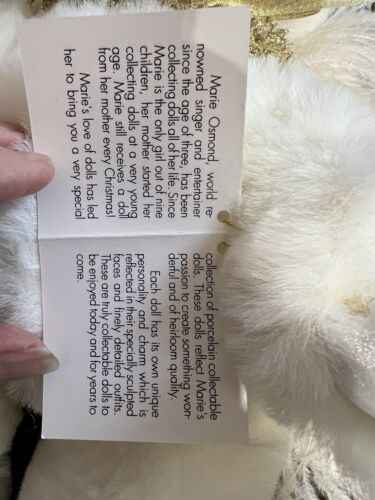 Marie Osmond, world re-
nowned singer and entertainer
since the age of three, has been
collecting dolls all of her life. Since
Marie is the only girl out of nine
children, her mother started her
collecting dolls at a very young
age. Marie still receives a doll
from her mother every Christmas!
Marie's love of dolls has led
her to bring you a very special
collection of porcelain collectable
dolls. These dolls reflect Marie's
passion to create something won-
derful and of heirloom quality.
Each doll has its own unique
personality and charm which is
reflected in their specially sculpted
faces and finely detailed outfits.
These are truly collectable dolls to
be enjoyed today and for years to
come.